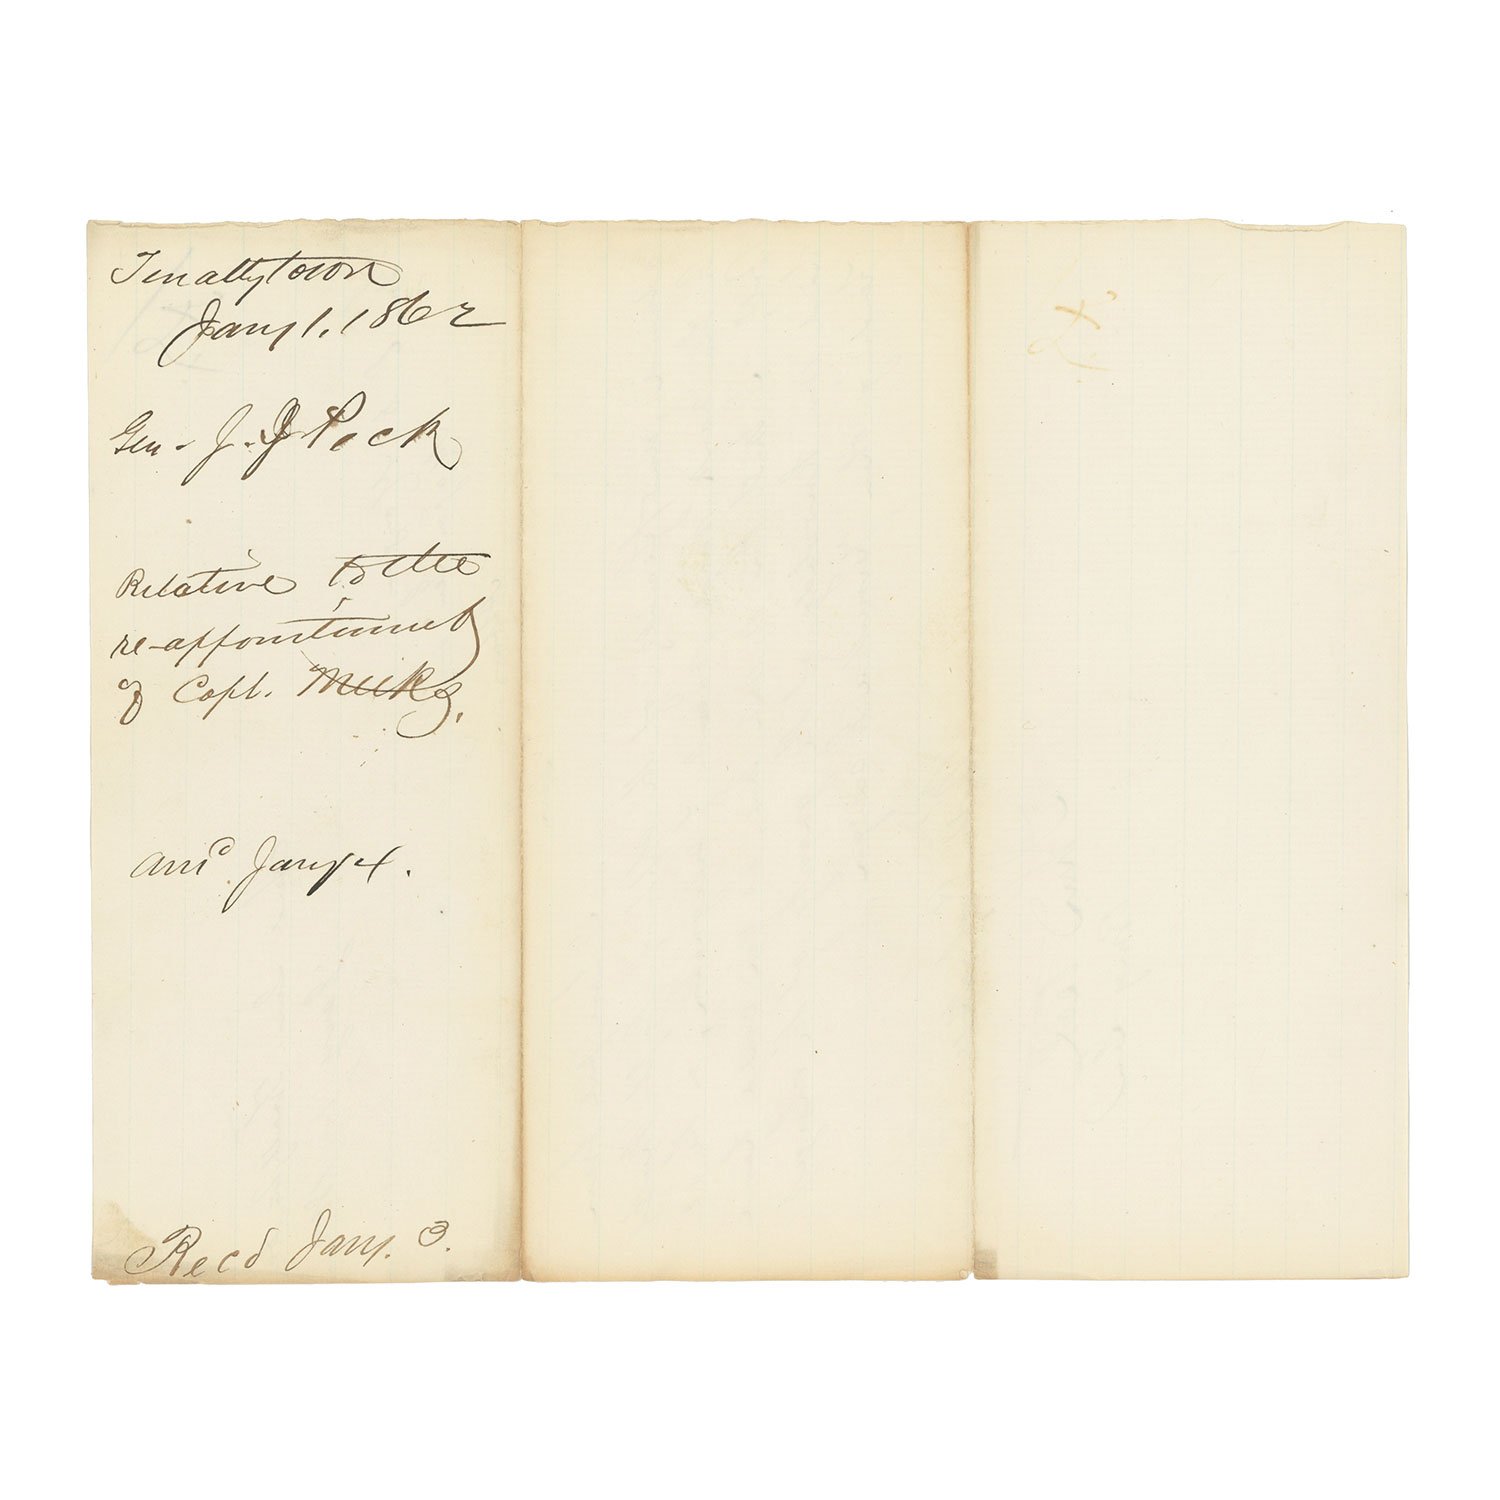 Tenallytown
Jany 1. 1862
Gen. J. J Peck
Relative to the
re-appointment
of Capt. Meeks.
Ansd. Jany 4.
Recd Jany. 3.